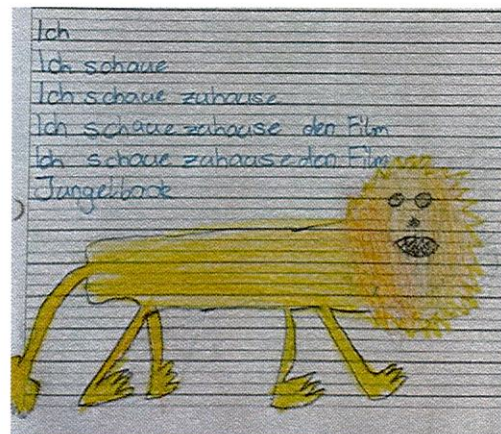 Ich
Ich schaue
Ich schaue zuhause
Ich schaue zuhause den Film
Ich schaue zuhause den Film
Jungelbook